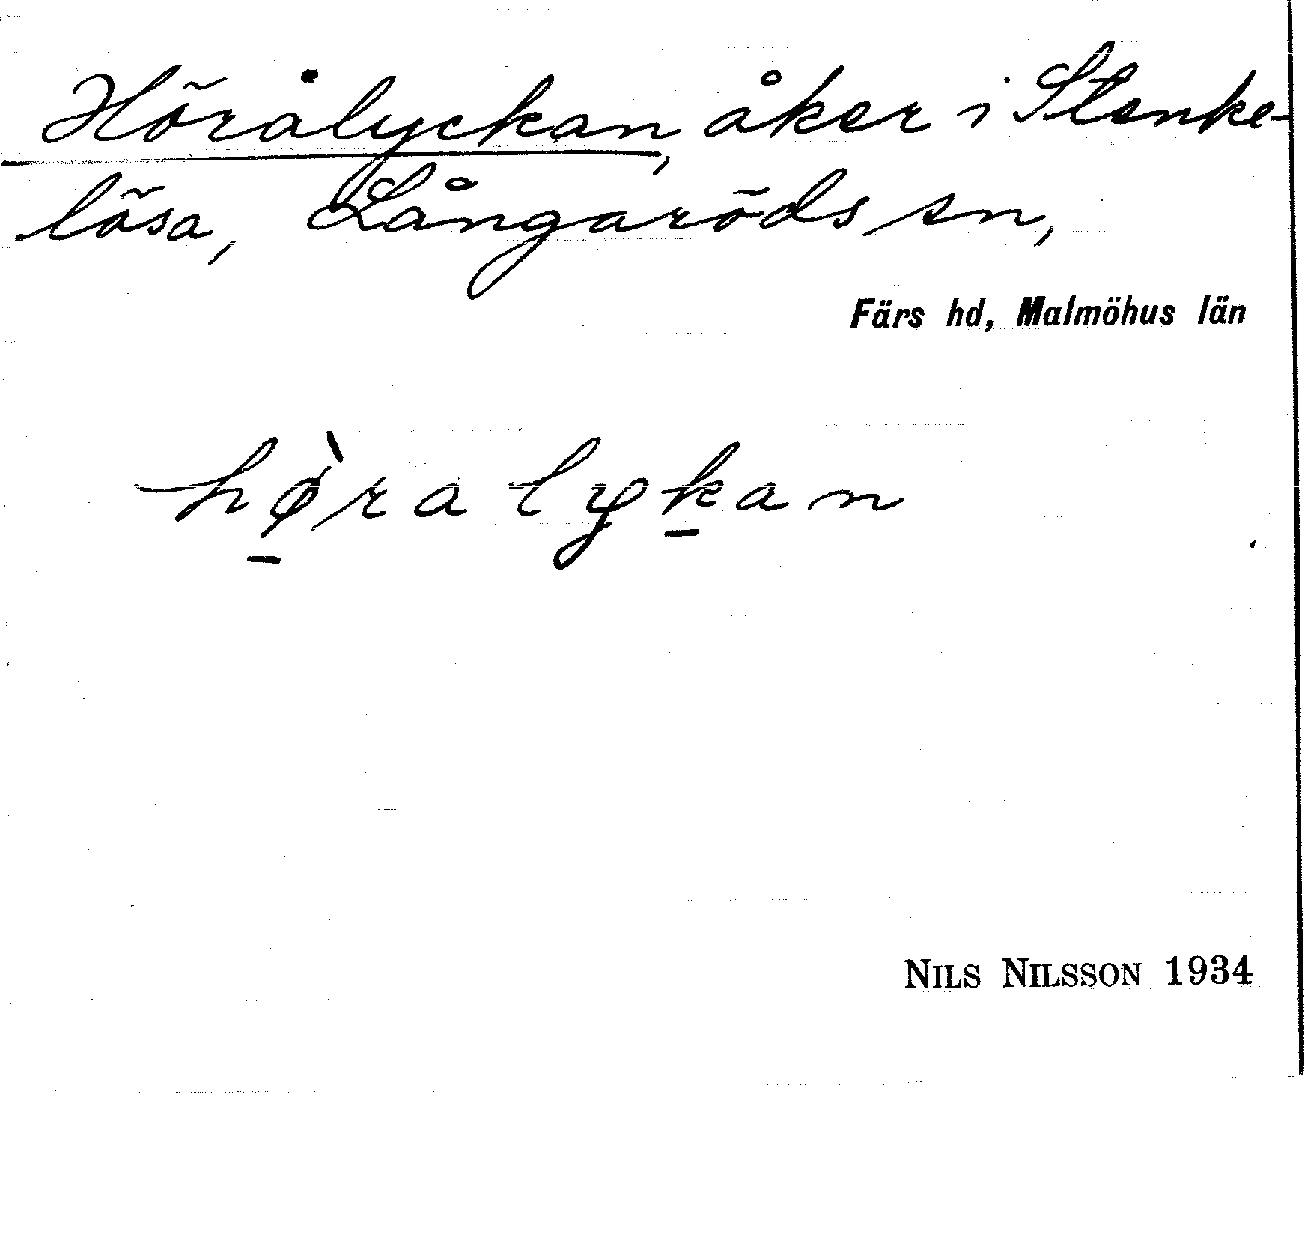 Hörålyckan, åker i Stenke-
lösa, Långaröds sn,
Färs hd, Malmöhus län
hø̱̀ralyḵan
NILS NILSSON 1934